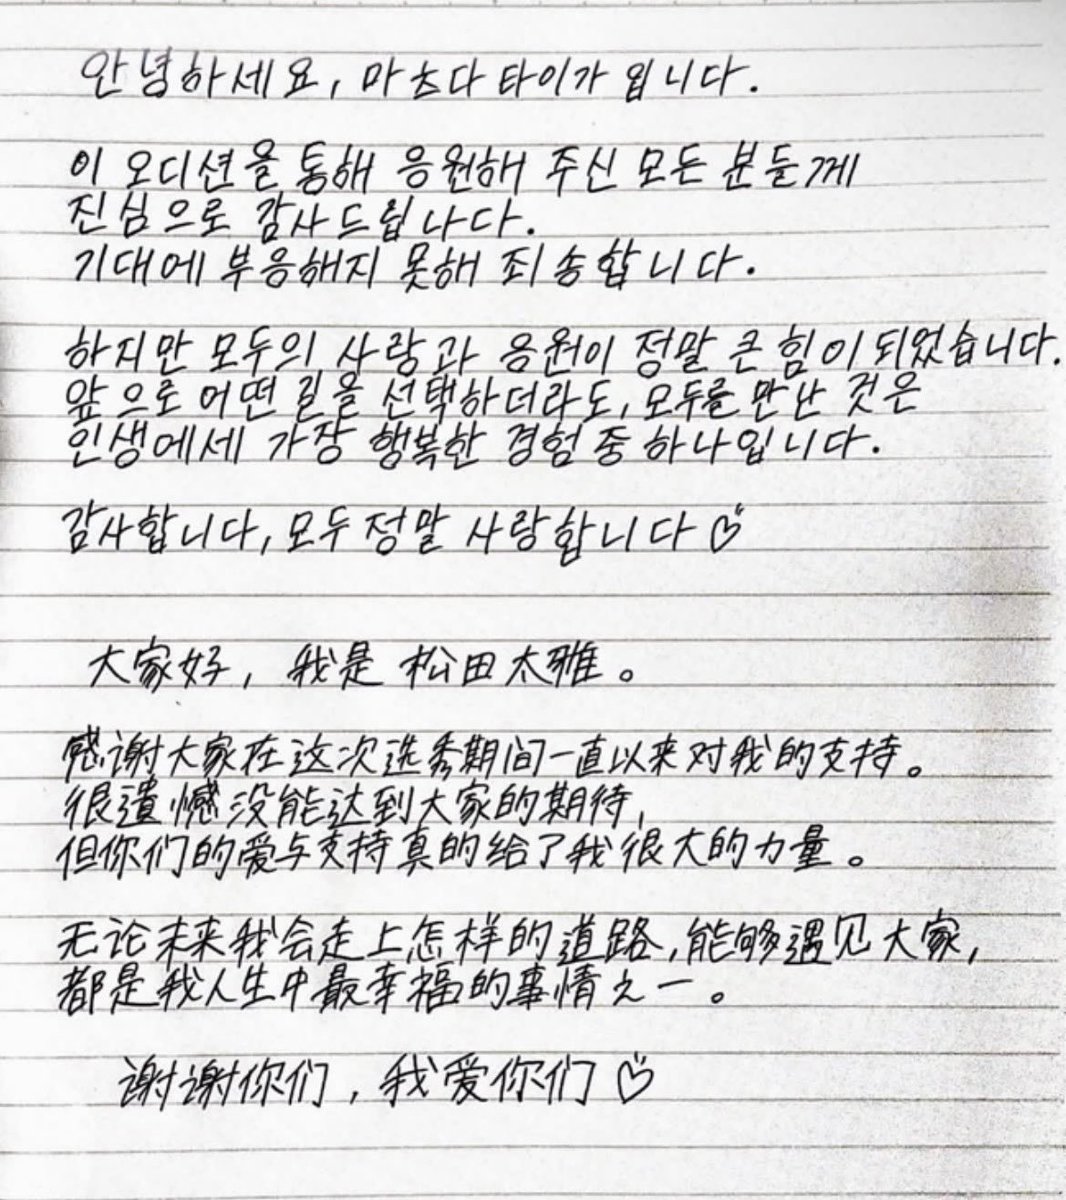 안녕하세요, 마츠다 타이가 입니다.
이 오디션을 통해 응원해 주신 모든 분들께
진심으로 감사드립나다.
기대에 부응해지 못해 죄송합니다.
하지만 모두의 사랑과 응원이 정말 큰 힘이 되었습니다.
앞으로 어떤 길을 선택하더라도, 모두를 만난 것은
인생에세 가장 행복한 경험 중 하나입니다.
감사합니다, 모두 정말 사랑합니다♡
大家好, 我是 松田太雅。
感谢大家在这次选秀期间一直以来对我的支持。
很遗憾没能达到大家的期待,
但你们的爱与支持真的给了我很大的力量。
无论未来我会走上怎样的道路,能够遇见大家,
都是我人生中最幸福的事情之一。
谢谢你们, 我爱你们♡